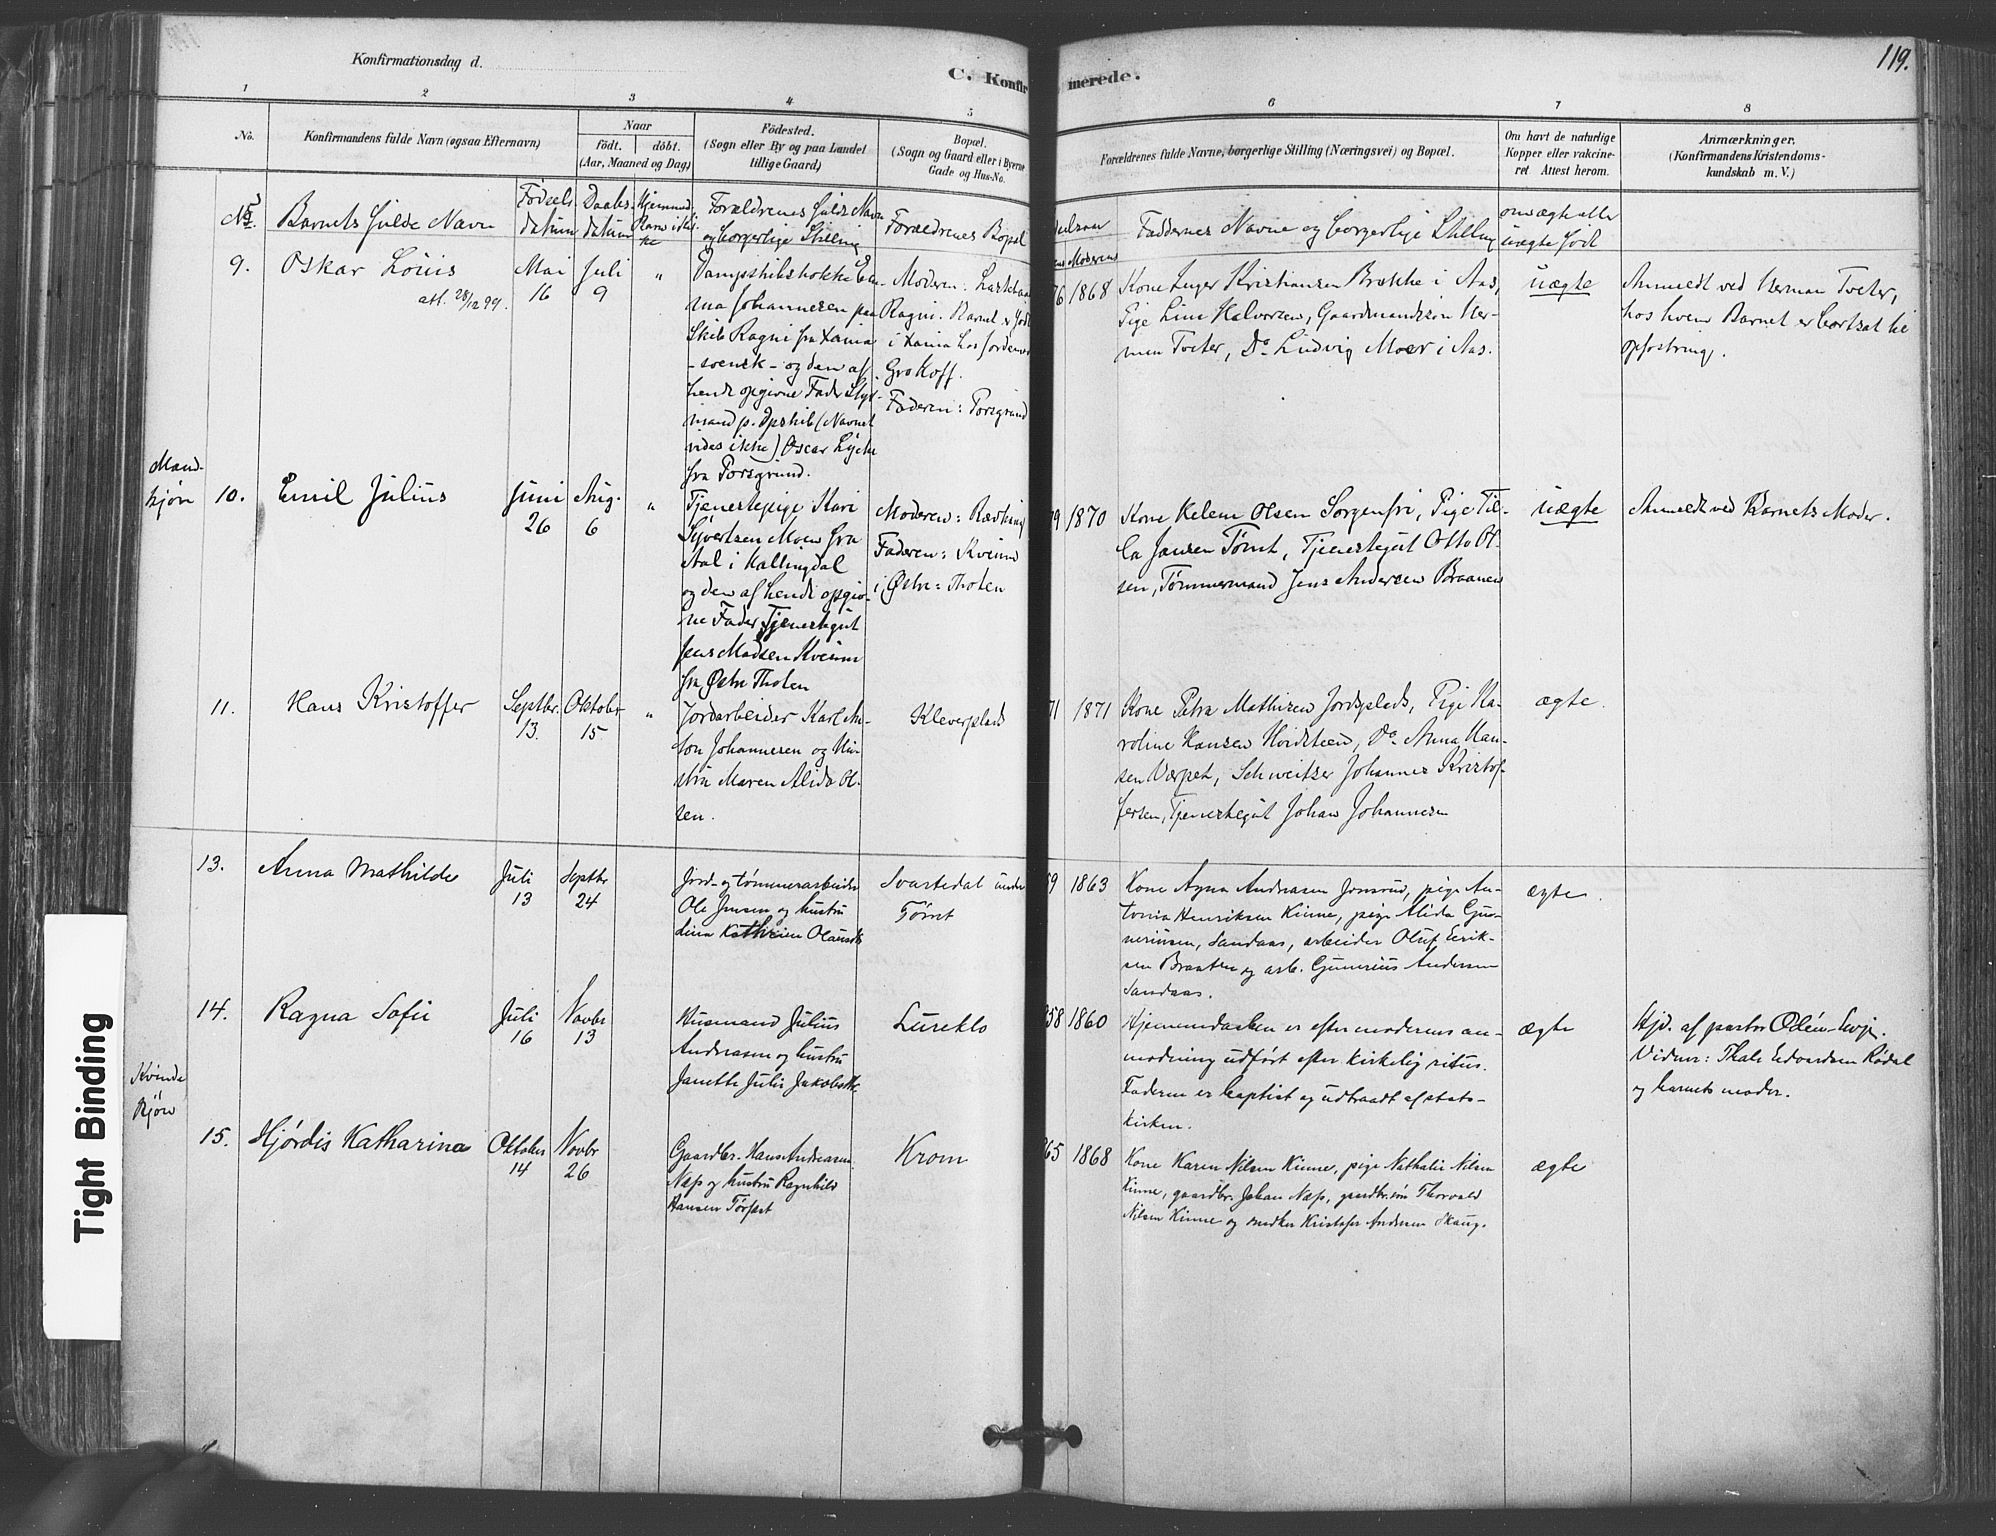 119.
Konfirmationsdag d.
C. Konfir merede.
1 2 3 4 5 6 7 8
No.
Konfirmandens fulde Navn (ogsaa Efternavn)
Naar
født. døbt.
(Aar, Maaned og Dag)
Fødested.
(Sogn eller By og paa Landet
tillige Gaard)
Bopæl.
(Sogn og Gaard eller i Byerne
Gade og Hus-No.
Forældrenes fulde Navne, borgerlige Stilling (Næringsvei) og Bopæl.
Om havt de naturlige
Kopper eller vakcine-
ret Attest herom.
Anmærkninger.
(Konfirmandens Kristendoms-
kundskab m. V.)
No.
Barnets fulde Navn
Fødsels
datum
Daabs-
datum
Hjemmed.
Forældrenes fulde Navn
og borgerlige Stilling
Forældrenes Bopæl
Moderens
Faddernes Navne og borgerlige Stilling
om ægte eller
uægte født
9.
Oskar Louis
att. 28/12 99.
Mai
16
Juli
9
"
Dampskibskokke Em-
ma Johannesen paa
Skib Ragni fra Xania
- svensk - og den af
hende opgivne Fader Styr-
mand p. Dpskib (Navnet
vides ikke) Oscar Lycke
fra Porsgrund.
Moderen:
Ragni. Barnet er født
i Xania hos Jordemor
Grokoff.
Faderen: Porsgrund
76
1868
Kone Inger Kristiansen Brække i Aas,
Pige Lina Halvorsen, Gaardmandssøn Her-
man Tveter, Do Ludvig Moer i Aas.
uægte
Anmeldt ved Herman Tveter,
hos hvem Barnet er bortsat til
opfostring.
Mand-
kjøn
10.
Emil Julius
Juni
26
Aug.
6
"
Tjenestepige Kari
Syvertsen Moen fra
Aal i Hallingdal
og den af hende opgiv-
ne Fader, Tjenestegut
Jens Madsen Kvem
fra Østre Thoten
Moderen:
Faderen:
i Østre Thoten
79
1870
Kone Helene Olsen Sorgenfri, Pige Til-
la Jansen Tømt, Tjenestegut Otto Ol-
sen, Tømmermand Jens Andersen Braanen
uægte
Anmeldt ved Barnets Moder.
11.
Hans Kristoffer
Septbr.
13.
Oktober
15
"
Jordarbeider Karl An-
ton Johannesen og Hu-
stru Maren Alida Ol-
sen.
Kleverplads
71
1871
Kone Petra Mathisen Jordsplads, Pige Ka-
roline Hansen Hvidsteen, Do Anna Han-
sen Værpet, Schweitser Johannes Kristof-
fersen, Tjenestegut Johan Johannesen
ægte.
13.
Anna Mathilde
Juli
13
Septbr
24
Jord- og tømmerarbeider
Ole Jensen og hustru
Lina Kathrine
Svartedal under
Tømt
59
1863
Kone Agna Andreasen Jonsrud, pige An-
tonia Henriksen Kinne, pige Alida Gun-
neriusen, Sandaas, arbeider Oluf Eerik-
sen Braaten og arb. Gunerius Andersen
Sandaas.
ægte.
14.
Ragna Sofie
Juli
16
Novbr
13
Husmand Julius
Andreasen og hustru
Janette Julie
Lureklo
858
1860
Hjemmedaaben er efter moderens an-
modning udført efter kirkelig ritus.
Faderen er baptist og udtraadt af stats-
kirken.
ægte
Hjd. af pastor
Vidner: Thale Edvardsen Rødal
og barnets moder.
Kvinde
Kjøn
15.
Hjørdis Katharina
Oktober
14
Novbr
26
Gaardbr. Hans Andreasen
Næss og hustru Ragnhild
Hansen
Krom
865
1868
Kone Karen Nilsen Kinne, pige Nathalie Nilsen
Kinne, gaardbr. Johan Næss, gaardbr.søn Thorvald
Nilsen Kinne og snedker Kristofer Andersen Skaug.
ægte
Tight Binding